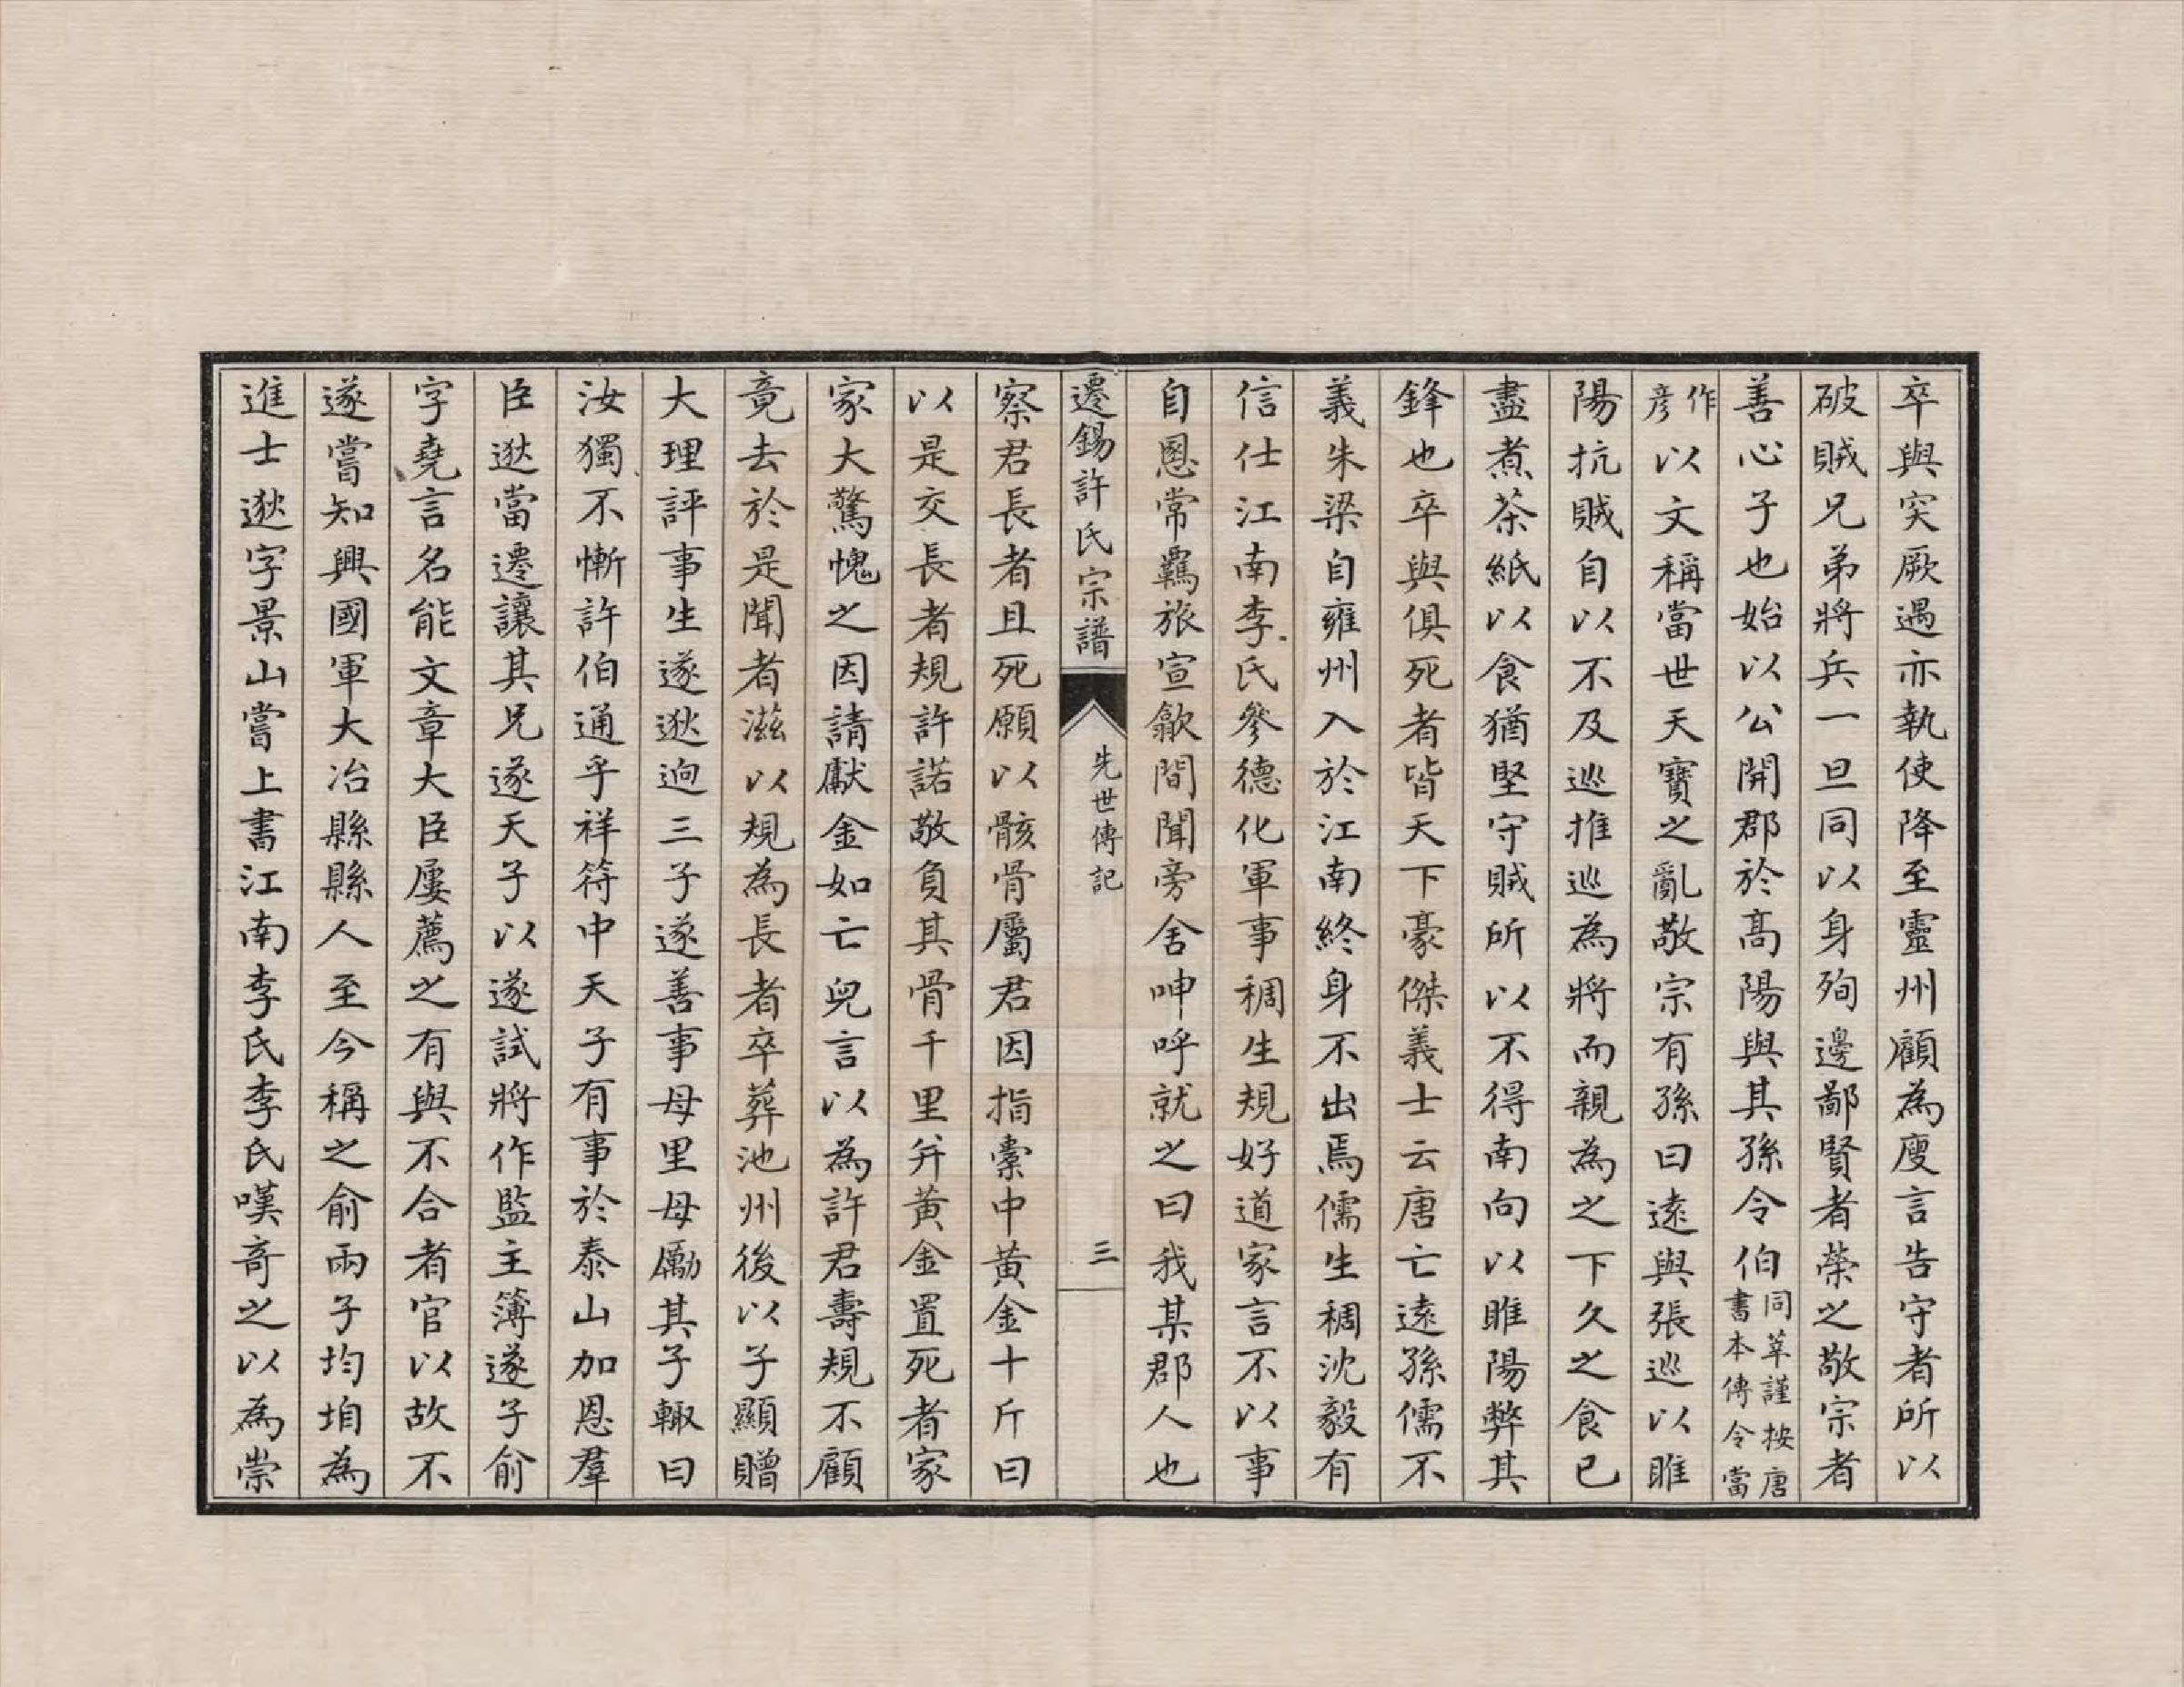 卒與突厥遇亦執使降至靈州顧為廋言告守者所以
破賊兄弟將兵一旦同以身殉邊鄙賢者榮之敬宗者
善心子也始以公開郡於高陽與其孫令伯同莘謹按唐書本傳令當
作彦以文稱當世天寶之亂敬宗有孫曰遠與張巡以睢
陽抗賊自以不及巡推巡為將而親為之下久之食已
盡煮茶紙以食猶堅守賊所以不得南向以睢陽弊其
鋒也卒與俱死者皆天下豪傑義士云唐亡遠孫儒不
義朱梁自雍州入於江南終身不出焉儒生稠沈毅有
信仕江南李氏參德化軍事稠生規好道家言不以事
自慁常羈旅宣歙間聞旁舍呻呼就之曰我某郡人也
遷錫許氏宗譜
先世傳記
三
察君長者且死願以骸骨屬君因指橐中黃金十斤曰
以是交長者規許諾敬負其骨千里并黃金置死者家
家大驚愧之因請獻金如亡兒言以為許君壽規不顧
竟去於是聞者滋以規為長者卒葬池州後以子顯贈
大理評事生遂逖迥三子遂善事母里母勵其子輙曰
汝獨不慚許伯通乎祥符中天子有事於泰山加恩羣
臣逖當遷讓其兄遂天子以遂試將作監主簿遂子俞
字堯言名能文章大臣屢薦之有與不合者官以故不
遂嘗知興國軍大冶縣縣人至今稱之俞兩子均坦為
進士逖字景山嘗上書江南李氏李氏嘆奇之以為崇